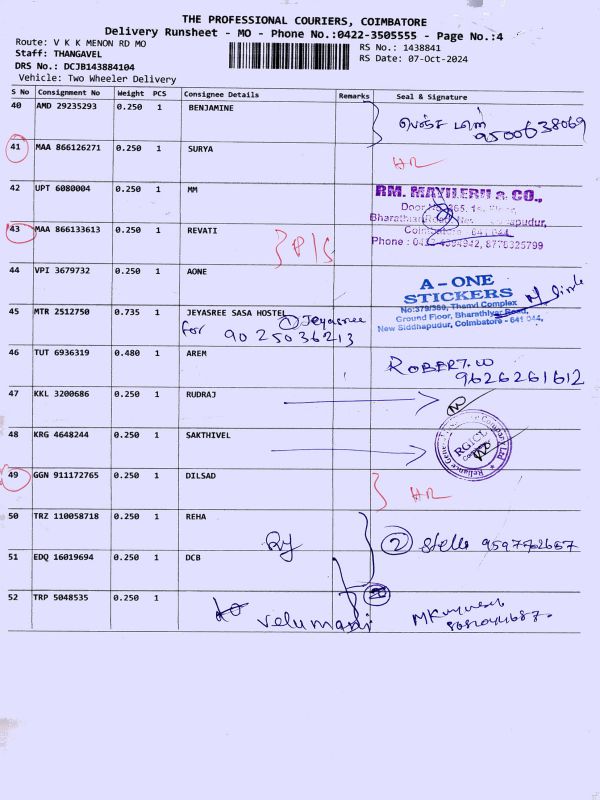 THE PROFESSIONAL COURIERS, COIMBATORE
Delivery Runsheet - MO - Phone No.:0422-3505555 - Page No.:4
Route: V K K MENON RD MO
RS No.: 1438841
Staff: THANGAVEL
RS Date: 07-Oct-2024
DRS No.: DCJB143884104
Vehicle: Two Wheeler Delivery
S No Consignment No Weight PCS Consignee Details Remarks Seal & Signature
40 AMD 29235293 0.250 1 BENJAMINE
9500638069
41 MAA 866126271 0.250 1 SURYA
42 UPT 6080004 0.250 1 MM
RM. MAYILERU & CO.,
Coimbatore - 641 044
43 MAA 866133613 0.250 1 REVATI
44 VPI 3679732 0.250 1 AONE
A - ONE
STICKERS
No:379/380, Thanvi Complex
Ground Floor, Bharathiyar Road,
New Siddhapudur, Coimbatore - 641 044.
45 MTR 2512750 0.735 1 JEYASREE SASA HOSTEL
Jeyasree
for 9025036213
46 TUT 6936319 0.480 1 AREM
ROBERT.W
9626261612
47 KKL 3200686 0.250 1 RUDRAJ
48 KRG 4648244 0.250 1 SAKTHIVEL
RGICL
49 GGN 911172765 0.250 1 DILSAD
50 TRZ 110058718 0.250 1 REHA
2
51 EDQ 16019694 0.250 1 DCB
52 TRP 5048535 0.250 1
velumani